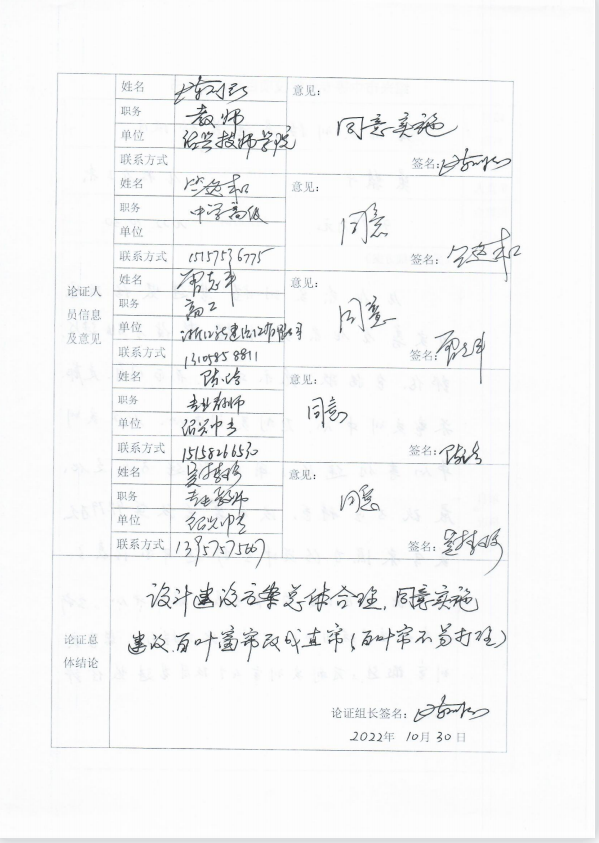 姓名
职务 教师
单位 绍兴技师学院
联系方式
意见：
同意实施
签名：
姓名
职务 中学高级
单位
联系方式 15157536775
意见：
同意
签名：
论证人
员信息
及意见
姓名
职务 高工
单位
联系方式 13105858811
意见：
同意
签名：
姓名 陈玲
职务 专业教师
单位 绍兴中专
联系方式 15158266530
意见：
同意
签名：
姓名
职务 专业教师
单位 绍兴中专
联系方式
意见：
同意
签名：
论证总
体结论
设计建设方案总体合理，同意实施
建议百叶窗帘改成直帘（百叶帘不易打理）
论证组长签名：
2022年 10月 30日